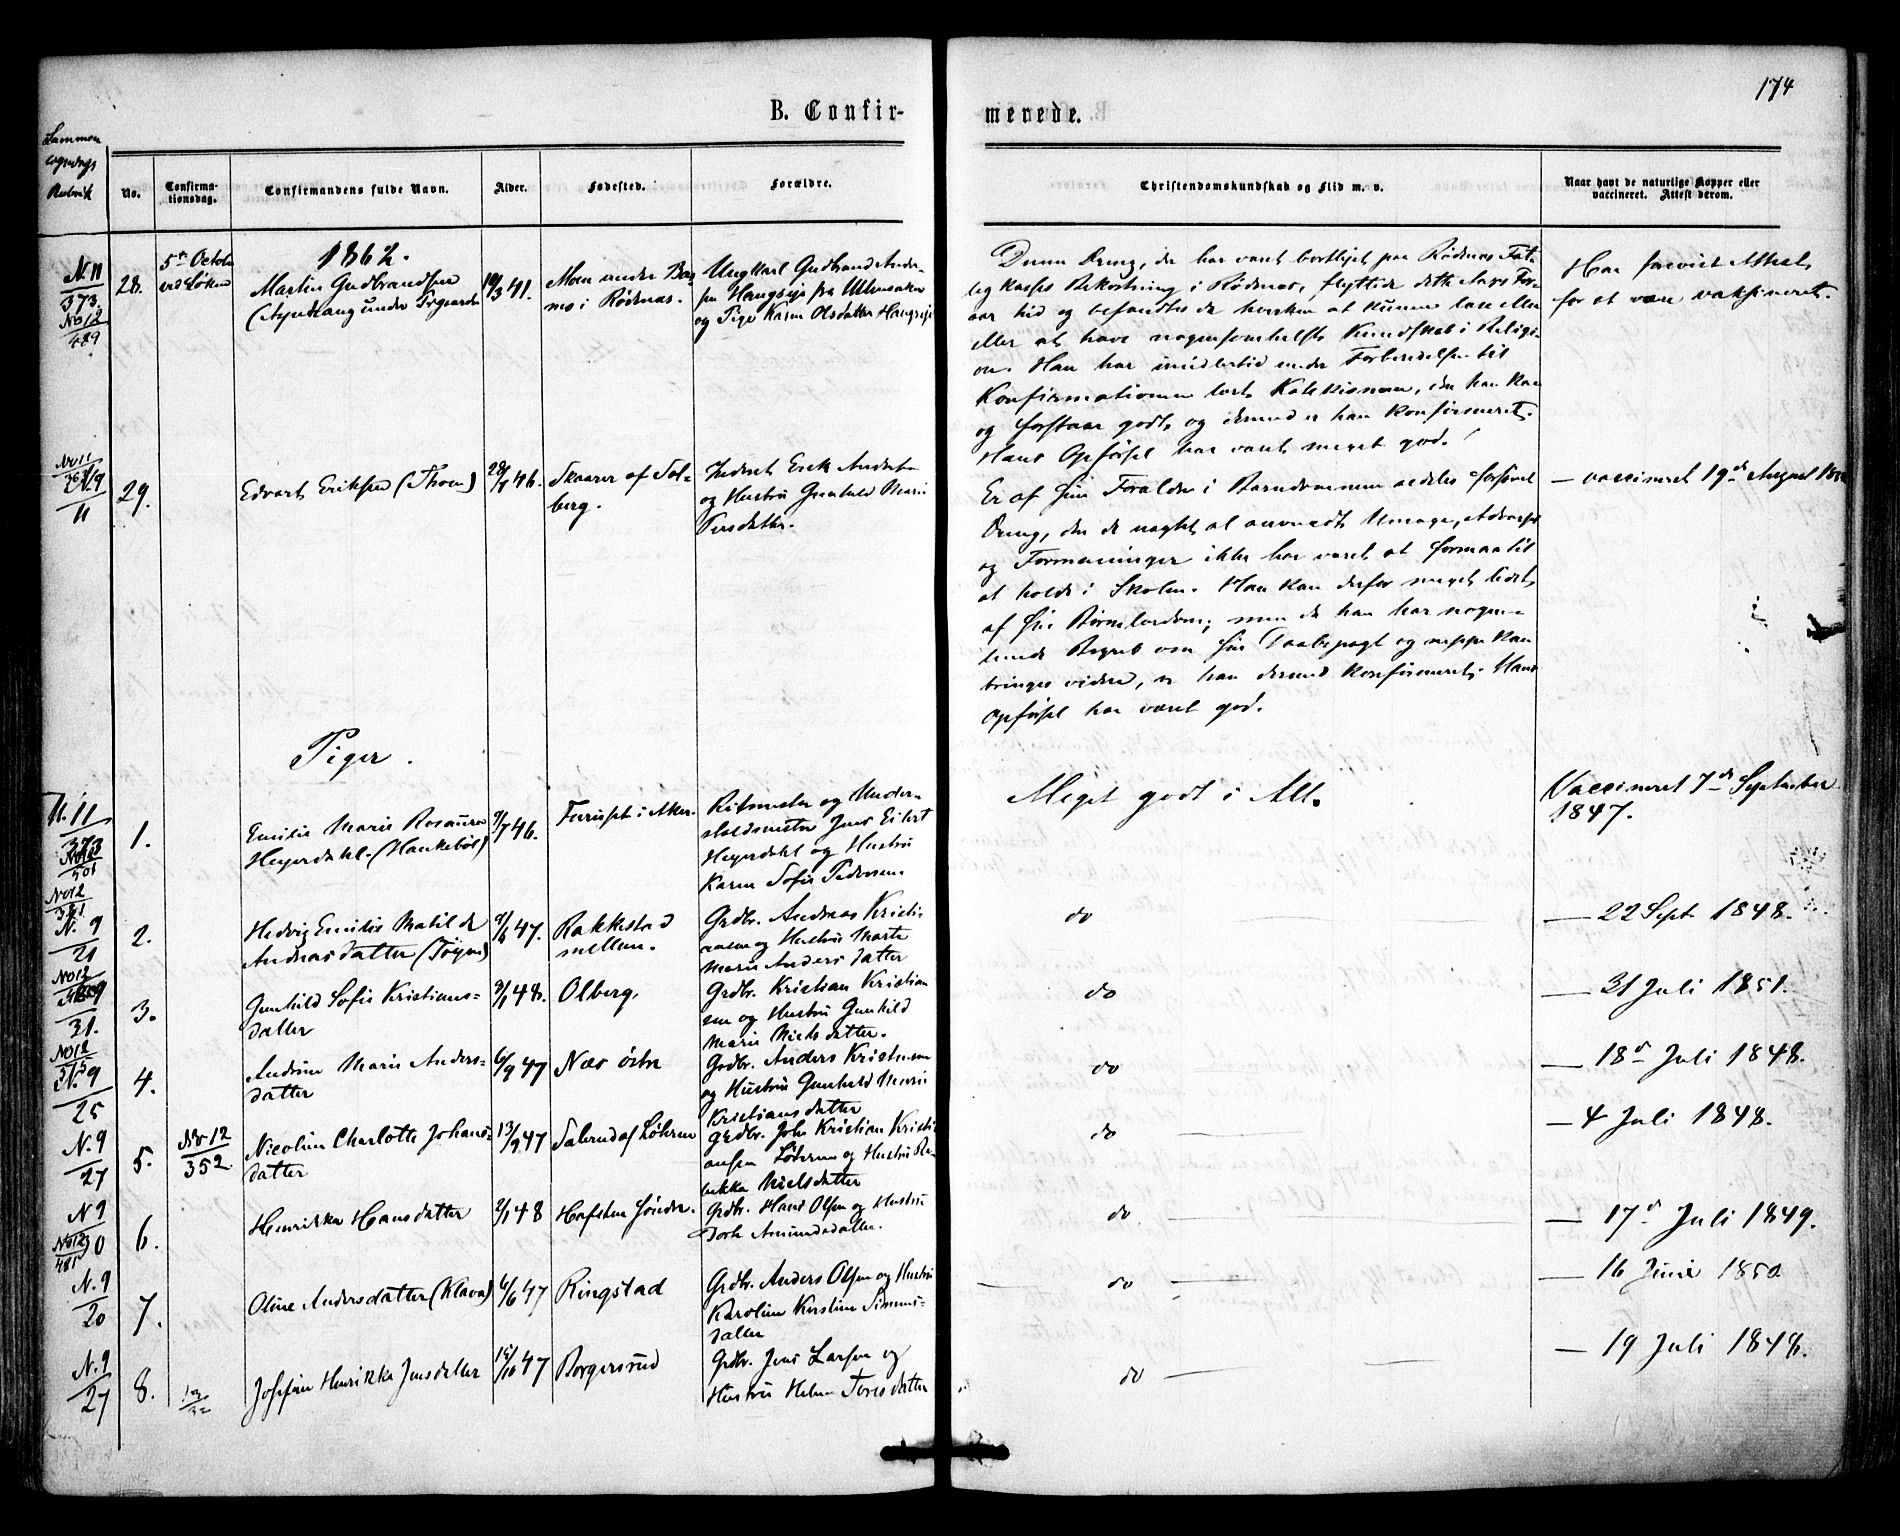 174
B. Confir-
merede.
Sammen
lignings
Rubrik
No.
Confirma-
tionsdag.
Confirmandens fulde Navn.
Alder.
Fødested.
Forældre.
Christendomskundskab og Flid m. v.
Naar havt de naturlige Kopper eller
vaccineret. Attest derom.
1862.
N. 11
373.
No 12
28.
5te October
ved Løken
Martin Gudbrandsen
19/3 41.
Moen under Bas-
mo i Rødenæs.
Ungkarl Gudbrand Ander-
sen Haugseje fra Ullensaker
og Pige Karen Olsdatter Haugseje
Denne Dreng, der har været bortlejet paa Rødenæs Fat-
tigkasses Bekostning i Rødenæs, flyttede dette Aars For-
aar hid og befandtes da hverken at kunne læse eller
eller at have nogensomhelst Kundskab i Religi-
on. Han har imidlertid under Forberedelsen til
Konfirmationen lært Katekismen, den han kan
og forstaar godt, og dermed er han konfirmeret.
Hans Opførsel har været meget god.
Har forevist Attest
for at være vaksineret.
No 11
N. 9
11
29.
Edvart Eriksen (Thoen)
46.
Skaarer af Sol-
berg.
Inderst Erik Anders
og Hustru Gunhild Marie
Persdatter.
Er af sine Forældre i Barndommen aldeles forsømt
Dreng, der da nagtet al anvendt Umage,
og Formaninger ikke har været at formaa til
at holde i Skolen. Han kan derfor meget lidet
af sin Børnelærdom; men da han har nogen-
lunde Begreb om sin Daabspagt og neppe kan
bringes videre, er han dermed konfirmeret. Hans
Opførsel har været god.
— vaccineret 19de August
Piger.
N. 11
373
501
1.
Emilie Marie Rosaura
Heyerdahl. (Haukebøl)
9/7 46.
Furuset i Aker.
Ritmester og Under-
holdsmester Jens Eilert
Heyerdahl og Hustru
Karen Sofie Pedersen.
Meget godt i Alt.
Vaccineret 7de September
1847.
No 12
381
N. 9
21
2.
Hedvig Emilie Matilde
Andreasdatter (Tøyen)
47.
Rakkestad
mellem.
Grdbr. Andreas Kristi-
ansen og Hustru Marte
Marie Andersdatter
do
— 22 Sept 1848.
No 12
31.
3.
Gunhild Sofie Kristians-
datter
9/1 48.
Olberg.
Grdbr. Kristian Kristian
sen og Hustru Gunhild
Marie Nielsdatter.
do
— 31 Juli 1851.
No 12
N. 9
25
4.
Andrine Marie Anders-
datter
6/9 47
Næs østre
Grdbr. Anders Kristensen
og Hustru Gunhild Marie
Kristiansdatter
do
— 18de Juli 1848.
N. 9
27
5.
No 12
352.
Nicoline Charlotte Johans-
datter
13/9 47
af Løkeren
Grdbr. Johs Kristian Kristi-
ansen Løkeren og Hustru Re-
bekka Nielsdatter
do
— 4 Juli 1848.
N. 9
30
No 12
481
6.
Henrikka Hansdatter
2/1 48
Hafsten søndre.
Grdbr. Hans Olsen og Hustru
Dorte Amundsdatter.
do
— 17de Juli 1849.
N. 9
20
7.
Oline Andersdatter (Klava)
6/6 47
Ringstad
Grdbr. Anders Olsen og Hustru
Karoline Kerstine Simens-
datter
do
— 16 Juni 1850
N. 9
27
8.
Josefine Henrikka Jensdatter
15/10 47
Borgersrud
Grdbr. Jens Larsen og
Hustru Helene Toresdatter
do
— 19 Juli 1848.